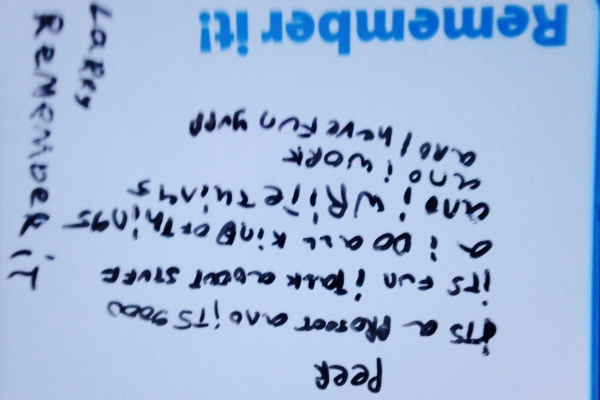 Peer
iTS a PROJECT and iTS good
iTS FUN i TALK about STUFF
a i DO aLL KIND OF Things
and i WRiTe Things
and i WORK
and I have Fun yupp
Remember it!
LaRRy
ReMeMbeR iT